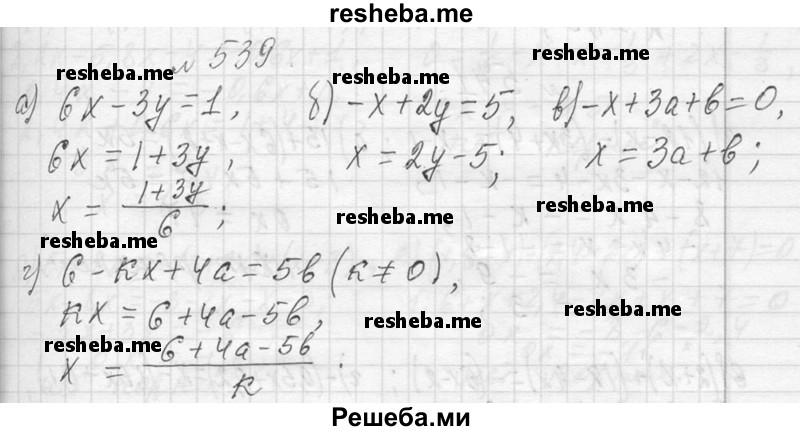 resheba.me
№ 539.
resheba.me resheba.me resheba.me
а) 6x - 3y = 1, б) -x + 2y = 5, в) -x + 3a + b = 0,
6x = 1 + 3y, x = 2y - 5; x = 3a + b;
x = \frac{1 + 3y}{6};
resheba.me resheba.me resheba.me
г) 6 - кx + 4a = 5b (к ≠ 0),
кx = 6 + 4a - 5b,
resheba.me resheba.me resheba.me
x = \frac{6 + 4a - 5b}{к}.
Решеба.ми